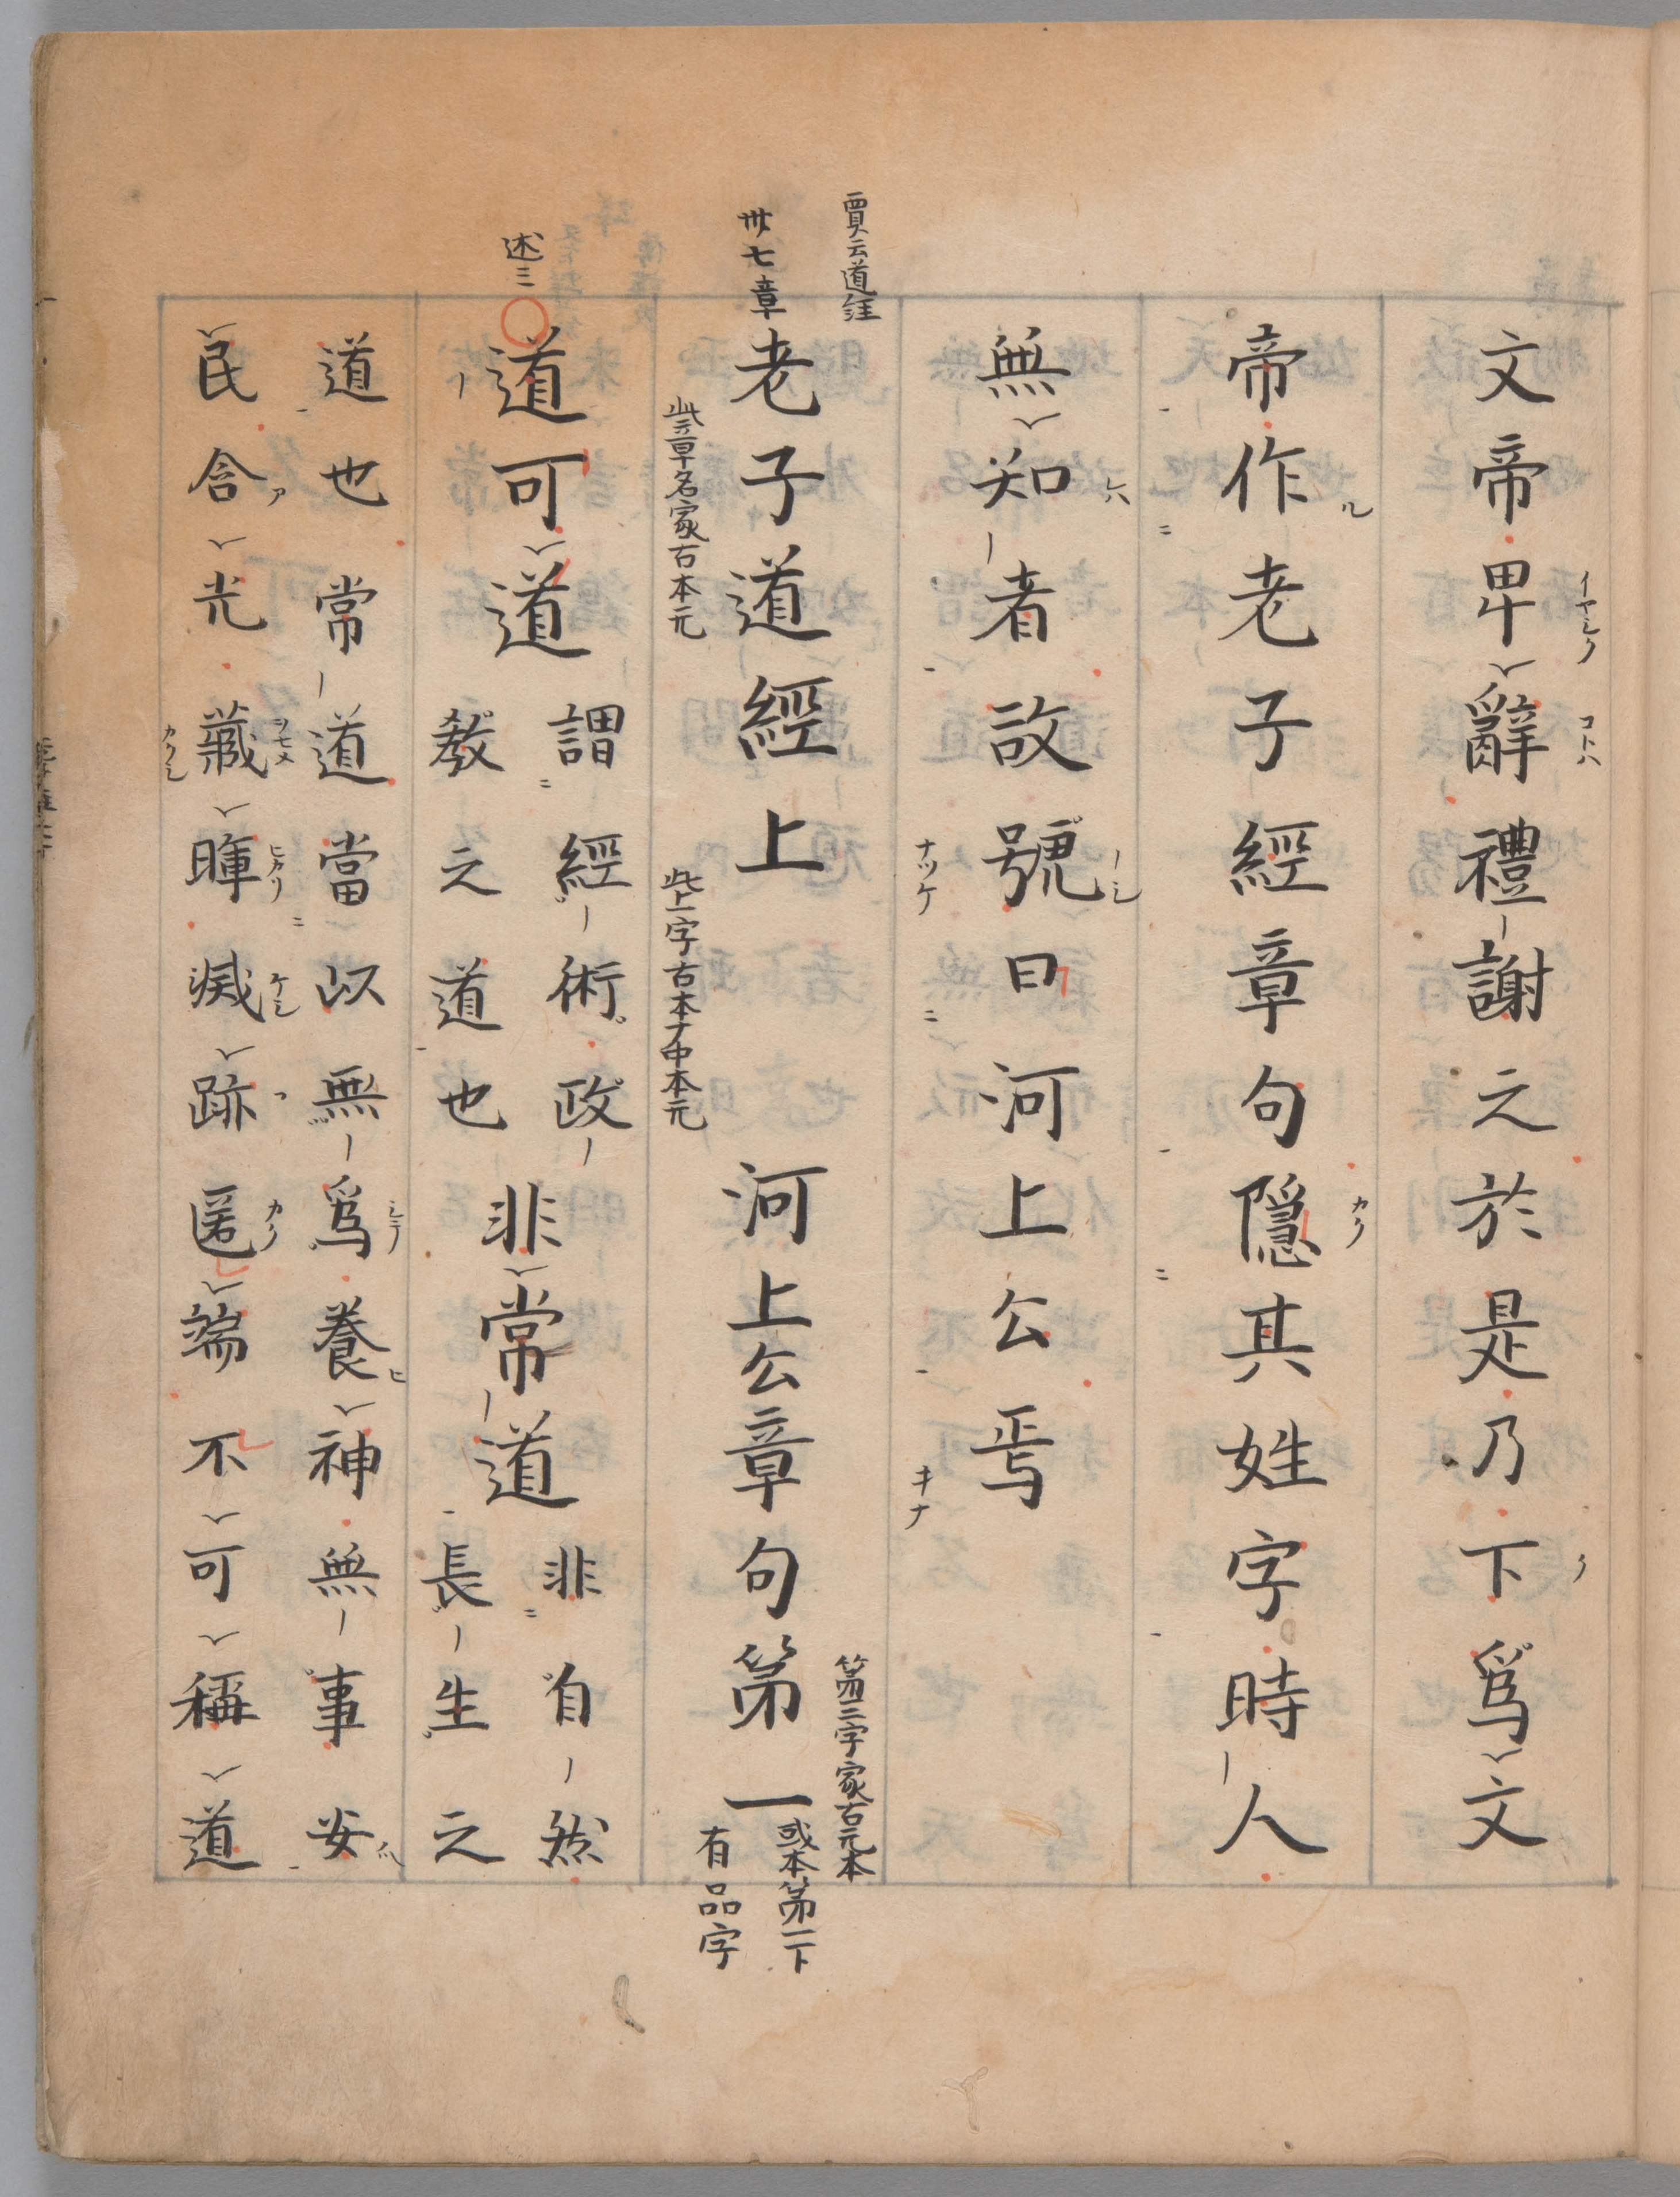 文帝卑辭禮謝之於是乃下爲文
帝作老子經章句隱其姓字時人
無知者故號曰河上公焉
賈云道經
卅七章
老子道經上 河上公章句第一
第二字家古元本
或本第一下
有品字
此章名家古本元
此上字古本ナ中本元
述三
道可道
謂經術政
教之道也
非常道
非自然
長生之
道也常道當以無爲養神無事安
民含光藏暉滅跡匿端不可稱道